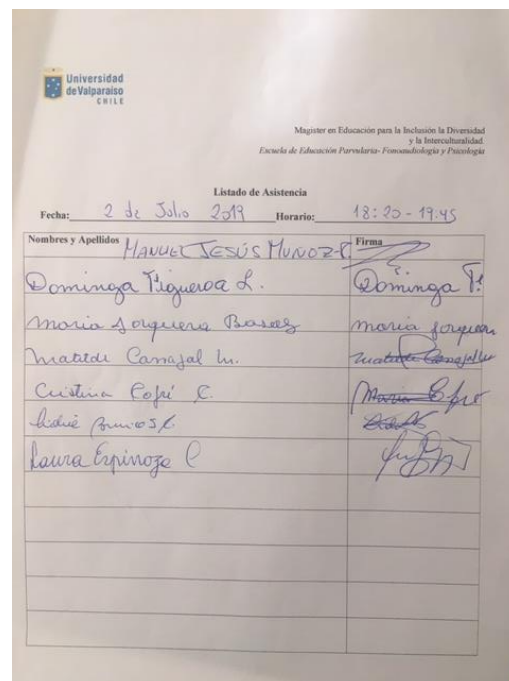 Universidad
de Valparaíso
CHILE
Magister en Educación para la Inclusión la Diversidad
y la Interculturalidad.
Escuela de Educación Parvularia- Fonoaudiología y Psicología
Listado de Asistencia
Fecha: 2 de Julio 2019 Horario: 18:20 - 19:45
Nombres y Apellidos MANUEL JESÚS MUNOZ Firma
Dominga Figueroa L. Dominga F.
Maria Jorquera maria jorquera
Matilde Carvajal M. Matilde Carvajal
Cristina Cofré C. Cofré
Laura Espinoza C